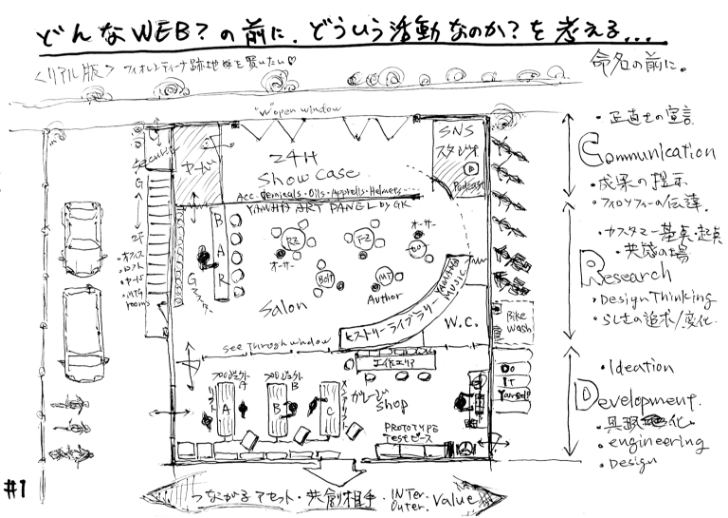 どんなWEB?の前に、どういう活動なのか?を考える...
<リアル版> フィオレンティーナ跡地 を買いたい♡
命名の前に。
"W"open window
24H
Show Case
SNS
スタジオ
Podcast
ヤード
YAMAHA ART PANEL by GK
BAR
RZ
FZ
オーサー
オーサー
Bolt
MT
Author
Salon
ヒストリーライブラリー
YAMAHA MUSIC
W.C.
Bike
Wash
See through window
2F
・オフィス
・ヤード
rooms
工作エリア
プロジェクトA
プロジェクトB
A
B
C
ガレージ
Shop
PROTOTYPE
Testピース
Do
IT
Yourself
・正直さの宣言
Communication
・成果の提示
・フィロソフィーの伝達
・カスタマー基点・起点
・共感の場
Research
・Design Thinking
・らしさの追求/変化
・Ideation
Development
・engineering
・Design
#1
つながるアセット・共創相手・INTer. Outer. Value